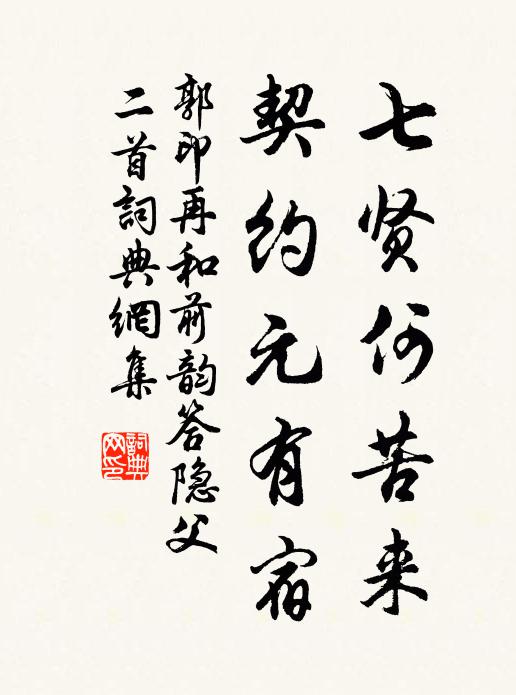 七贤何苦来
契约元有宿
郭印再和前韵答隐父
二首詞典網集
詞典
网印